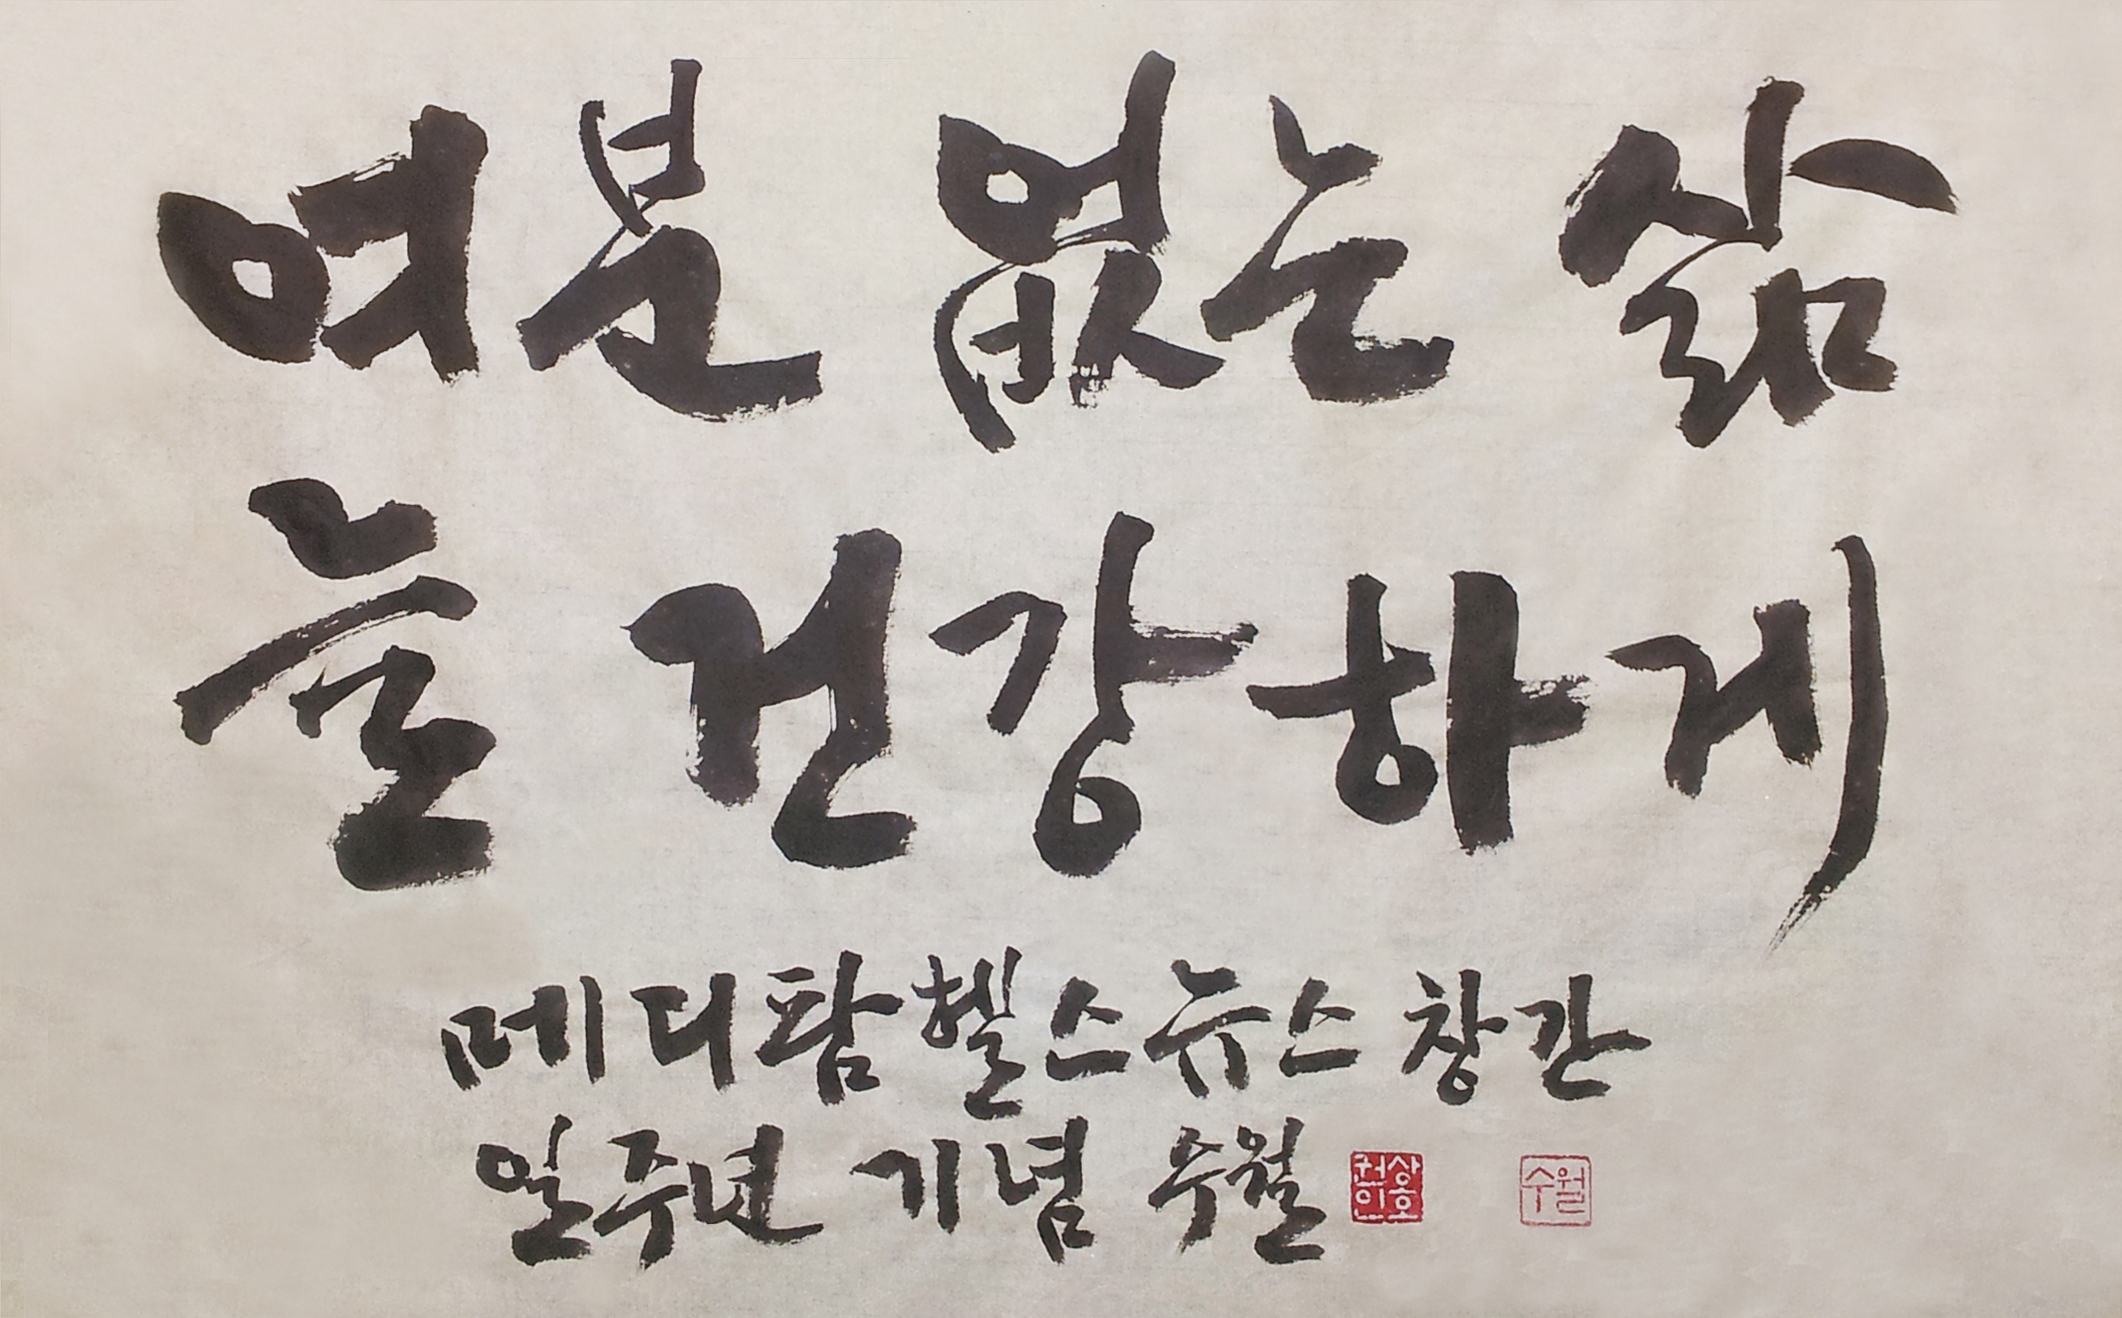 여분 없는 삶
늘 건강하게
메디팜헬스뉴스 창간
일주년 기념 수월
권상호인
수월